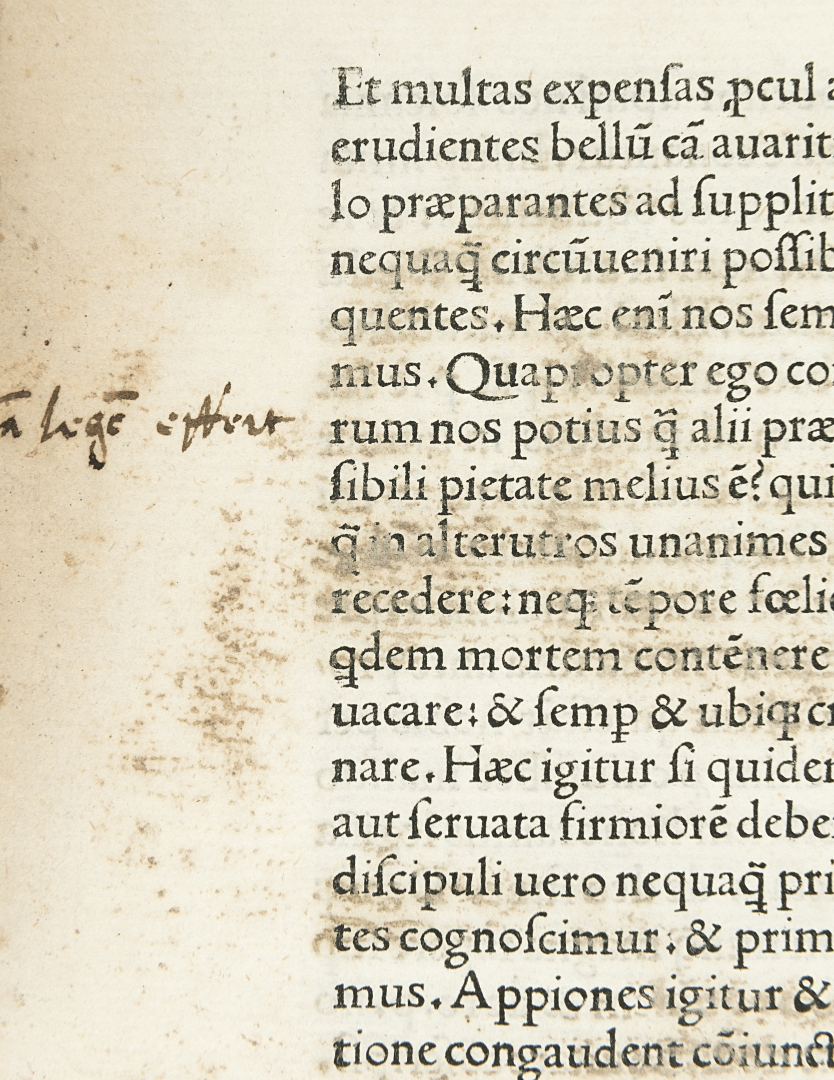 Et multas expenſas ꝓcul
erudientes bellū cā auarit
lo præparantes ad ſupplit
nequaq̃ circūueniri poſſib
quentes. Hæc enī nos ſem
mus. Quapropter ego co
ā legē effert
rum nos potius q̃ alii præ
ſibili pietate melius ē? qui
q̃ in alterutros unanimes
recedere: neqꝫ tēpore fœlic
qdem mortem contēnere
uacare: & ſemꝑ & ubiqꝫ cr
nare. Hæc igitur ſi quidem
aut ſeruata firmiorē debe
diſcipuli uero nequaq̃ pri
tes cognoſcimur: & prim
mus. Appiones igitur &
tione congaudent cōiunct